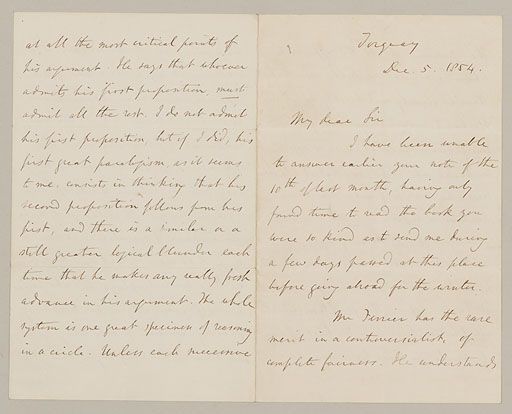 Torquay
Dec. 5. 1854.
My dear Sir
I have been unable
to answer earlier your note of the
10th of last month, having only
found time to read the book you
were so kind as to send me during
a few days passed at this place
before going abroad for the winter.
Mr Ferrier has the rare
merit in a controversialist, of
complete fairness. He understands
at all the most critical points of
his argument. He says that whoever
admits his first proposition, must
admit all the rest. I do not admit
his first proposition, but if I did, his
first great paralogism, as it seems
to me, consists in thinking that his
second proposition follows from his
first, and there is a similar or a
still greater logical blunder each
time that he makes any really fresh
advance in his argument. The whole
system is one great specimen of reasoning
in a circle. Unless each successive